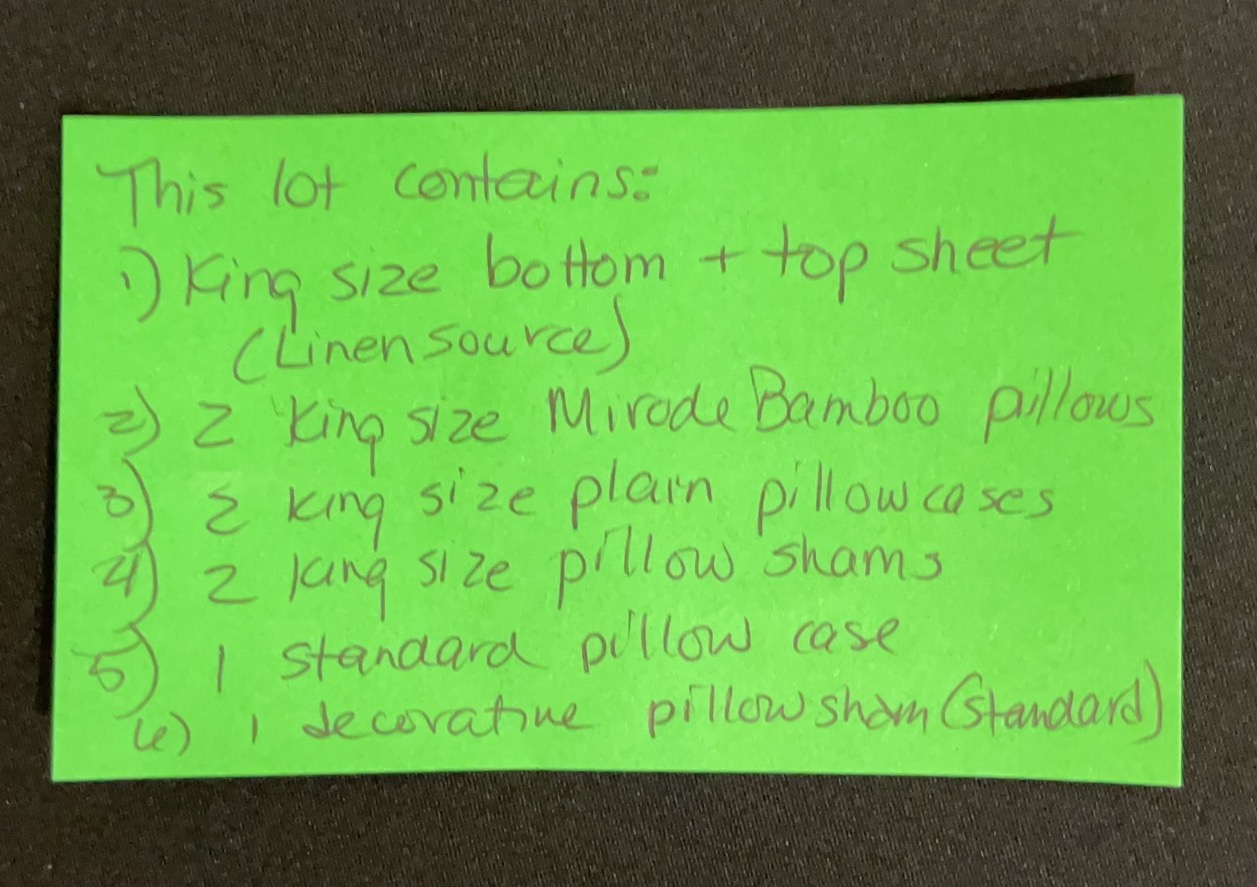 This lot contains:
1) King size bottom + top sheet
(Linen source)
2) 2 King size Mirode Bamboo pillows
3) 2 king size plain pillowcases
4) 2 king size pillow shams
5) 1 standard pillow case
6) 1 decorative pillow sham (standard)